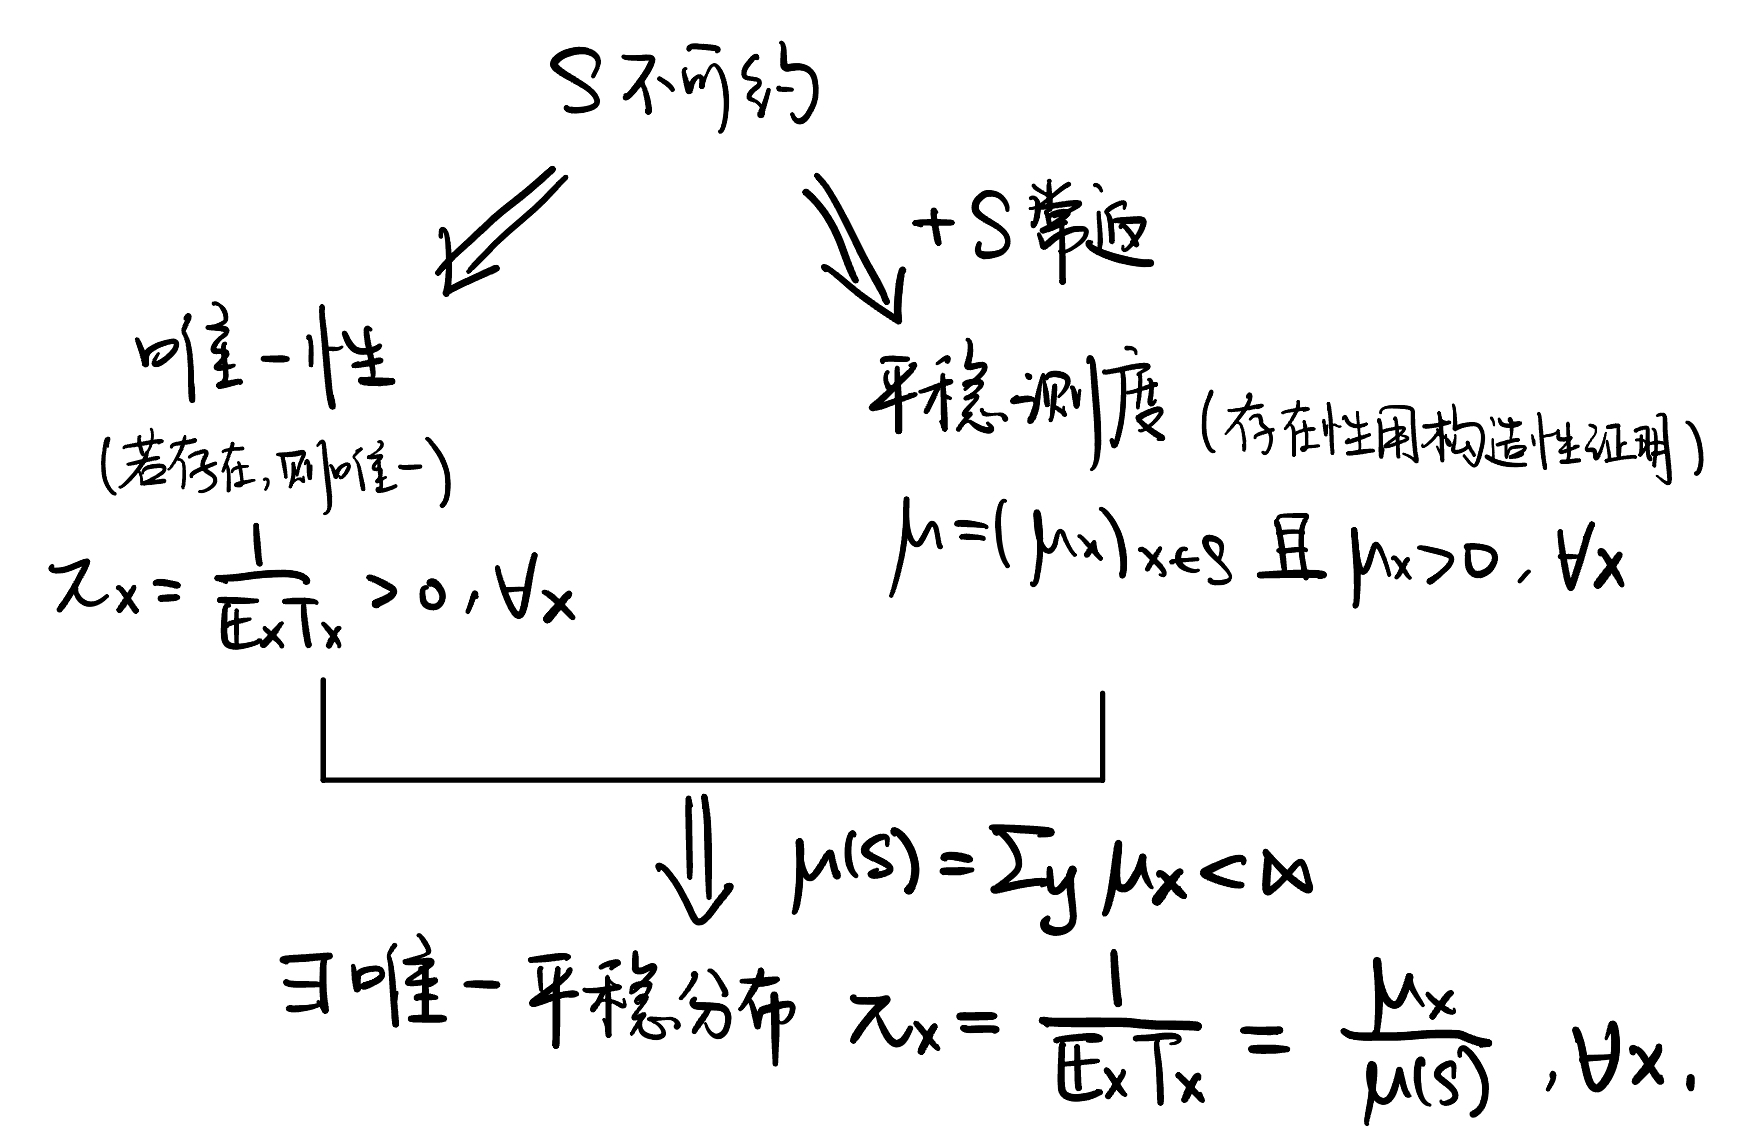 S不可约
+S常返
唯一性
(若存在,则唯一)
π_x = 1/(E_xT_x) > 0, ∀x
平稳测度(存在性用构造性证明)
μ=(μ_x)_{x∈S} 且 μ_x>0, ∀x
μ(S) = Σ_y μ_x < ∞
∃唯一平稳分布 π_x = 1/(E_xT_x) = μ_x/μ(S), ∀x.